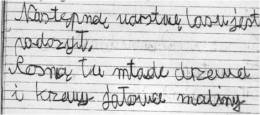 Następną warstwą lasu jest
podszyt.
Rosną tu młode drzewa
i krzewy jałowce maliny